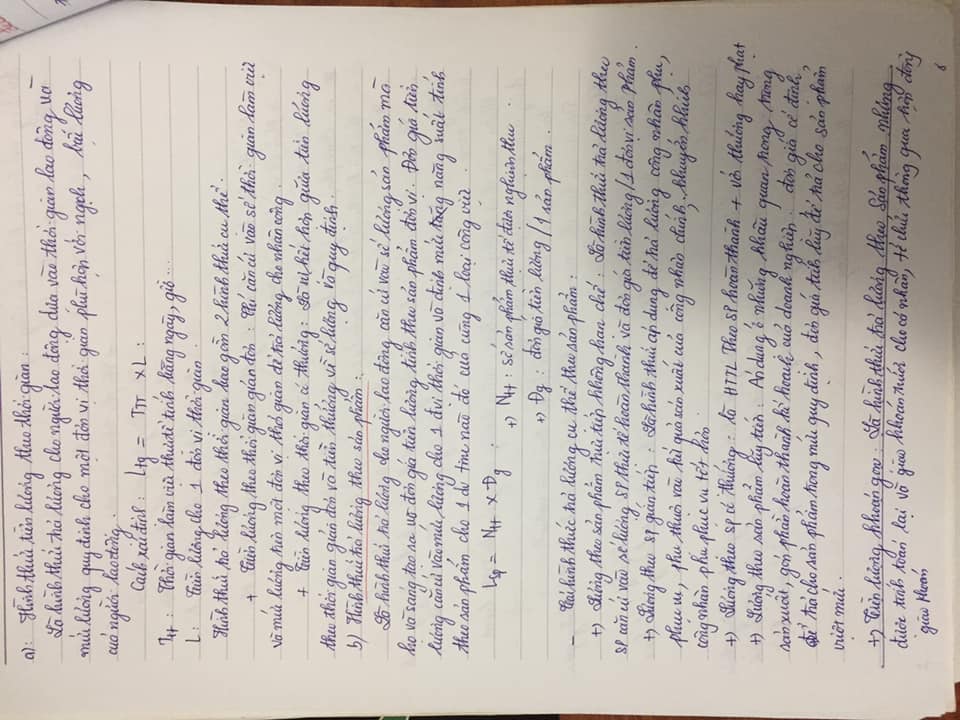 a) Hình thức tiền lương theo thời gian:
Là hình thức trả lương cho người lao động dựa vào thời gian lao động và
mức lương quy định cho một đơn vị thời gian phù hợp với ngạch, bậc lương
của người lao động.
Cách xác định: Ltg = Ttt x L:
Ttt: Thời gian làm việc thực tế tính bằng ngày, giờ...
L: Tiền lương cho 1 đơn vị thời gian
Hình thức trả lương theo thời gian bao gồm 2 hình thức cụ thể:
+ Tiền lương theo thời gian giản đơn: Chỉ căn cứ vào số thời gian làm việc
và mức lương trên một đơn vị thời gian để trả lương cho nhân công.
+ Tiền lương theo thời gian có thưởng: Là sự kết hợp giữa tiền lương
theo thời gian giản đơn và tiền thưởng vì số lượng và quy định.
b) Hình thức trả lương theo sản phẩm:
Là hình thức trả lương cho người lao động căn cứ vào số lượng sản phẩm mà
họ và sáng tạo ra và đơn giá tiền lương tính theo sản phẩm đơn vị. Đơn giá tiền
lương căn cứ vào mức lương cho 1 đvị thời gian và định mức năng suất tính
theo sản phẩm cho 1 đv tmu nào đó của cùng 1 loại công việc.
Lsp = Ntt x Đg : +) Ntt: số sản phẩm thực tế đạt nghiệm thu.
+) Đg: đơn giá tiền lương/1 sản phẩm.
- Các hình thức trả lương cụ thể theo sản phẩm:
+) Lương theo sản phẩm trực tiếp không hạn chế: Là hình thức trả lương theo
sp căn cứ vào số lượng sp thực tế hoàn thành và đơn giá tiền lương/1 đơn vị sản phẩm.
+) Lương theo sp gián tiếp: Là hình thức áp dụng để trả lương công nhân phụ,
phục vụ, phụ thuộc vào kết quả sản xuất của công nhân chính, khuyến khích
công nhân phụ phục vụ tốt hơn
+) Lương theo sp có thưởng: là HTTL theo sp hoàn thành + với thưởng hay phạt
+) Lương theo sản phẩm lũy tiến: Áp dụng ở những khâu quan trọng trong
sản xuất, góp phần hoàn thành kế hoạch của doanh nghiệp. đơn giá cố định,
để trả cho sản phẩm trong mức quy định, đơn giá tính lũy để trả cho sản phẩm
vượt mức.
+) Tiền lương khoán gọn: Là hình thức trả lương theo sản phẩm nhưng
được tính toán lại và giao khoán trước cho cá nhân, tổ chức thông qua hợp đồng
giao khoán